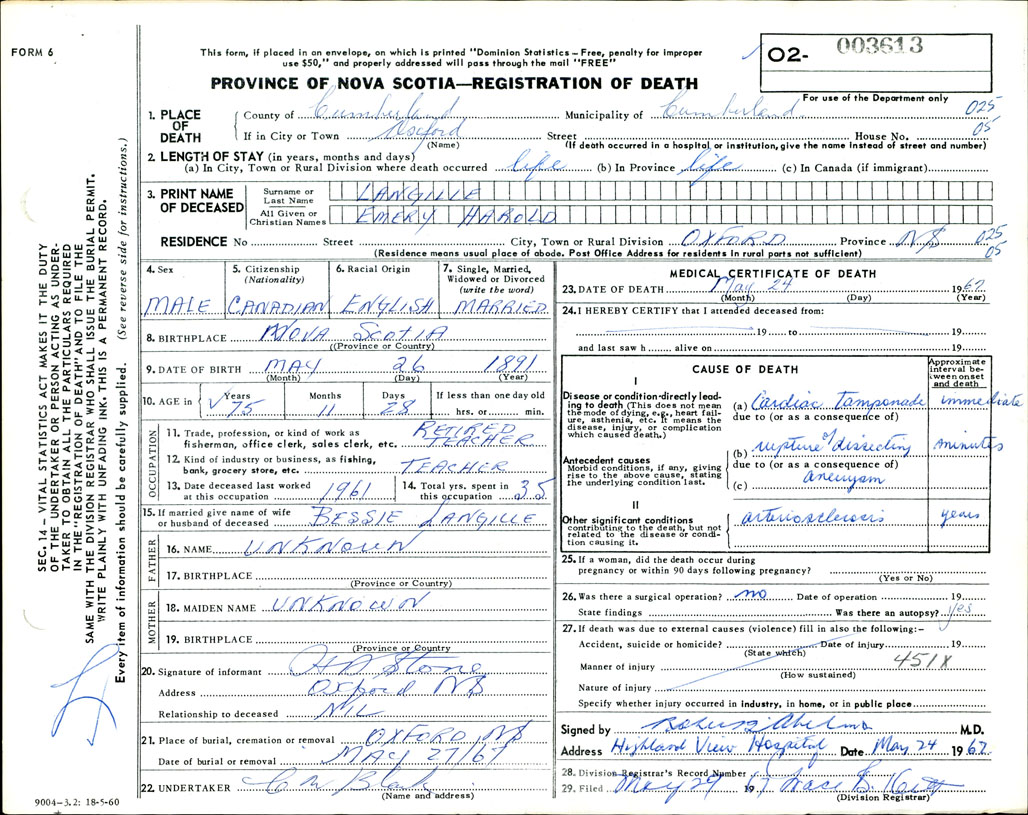 FORM 6
This form, if placed in an envelope, on which is printed "Dominion Statistics – Free, penalty for improper
use $50," and properly addressed will pass through the mail "FREE"
O2- 003613
PROVINCE OF NOVA SCOTIA—REGISTRATION OF DEATH
For use of the Department only
1. PLACE OF DEATH
County of Cumberland Municipality of Cumberland 025
If in City or Town Oxford Street House No. 05
(Name) (If death occurred in a hospital or institution, give the name instead of street and number)
2. LENGTH OF STAY (in years, months and days)
(a) In City, Town or Rural Division where death occurred life (b) In Province life (c) In Canada (if immigrant)
3. PRINT NAME OF DECEASED
Surname or Last Name LANGILLE
All Given or Christian Names EMERY HAROLD
RESIDENCE No Street City, Town or Rural Division OXFORD Province NS 025
(Residence means usual place of abode. Post Office Address for residents in rural parts not sufficient) 05
4. Sex MALE
5. Citizenship (Nationality) CANADIAN
6. Racial Origin ENGLISH
7. Single, Married, Widowed or Divorced (write the word) MARRIED
8. BIRTHPLACE NOVA SCOTIA
(Province or Country)
9. DATE OF BIRTH MAY 26 1891
(Month) (Day) (Year)
10. AGE in Years 75 Months 11 Days 28 If less than one day old
hrs. or min.
OCCUPATION
11. Trade, profession, or kind of work as
fisherman, office clerk, sales clerk, etc. RETIRED TEACHER
12. Kind of industry or business, as fishing,
bank, grocery store, etc. TEACHER
13. Date deceased last worked
at this occupation 1961
14. Total yrs. spent in
this occupation 35
15. If married give name of wife
or husband of deceased BESSIE LANGILLE
FATHER
16. NAME UNKNOWN
17. BIRTHPLACE
(Province or Country)
MOTHER
18. MAIDEN NAME UNKNOWN
19. BIRTHPLACE
(Province or Country
20. Signature of informant Stone
Address Oxford NS
Relationship to deceased NIL
21. Place of burial, cremation or removal OXFORD NS
Date of burial or removal MAY 27/67
22. UNDERTAKER
(Name and address)
9004-3.2: 18-5-60
MEDICAL CERTIFICATE OF DEATH
23. DATE OF DEATH May 24 1967
(Month) (Day) (Year)
24. I HEREBY CERTIFY that I attended deceased from:
19 to 19
and last saw h alive on 19
CAUSE OF DEATH
Approximate interval between onset and death
I
Disease or condition directly leading to death (This does not mean the mode of dying, e.g., heart failure, asthenia, etc. It means the disease, injury, or complication which caused death.)
(a) Cardiac tamponade immediate
due to (or as a consequence of)
Antecedent causes
Morbid conditions, if any, giving rise to the above cause, stating the underlying condition last.
(b) rupture of dissecting minutes
due to (or as a consequence of)
(c) aneurysm
II
Other significant conditions
contributing to the death, but not related to the disease or condition causing it.
arteriosclerosis years
25. If a woman, did the death occur during
pregnancy or within 90 days following pregnancy?
(Yes or No)
26. Was there a surgical operation? no Date of operation 19
State findings Was there an autopsy? yes
27. If death was due to external causes (violence) fill in also the following:–
Accident, suicide or homicide? Date of injury 19
(State which) 451X
Manner of injury
(How sustained)
Nature of injury
Specify whether injury occurred in industry, in home, or in public place
Signed by M.D.
Address Highland View Hospital Date May 24 1967
28. Division Registrar's Record Number
29. Filed May 29 1967
(Division Registrar)
SEC. 14 – VITAL STATISTICS ACT MAKES IT THE DUTY
OF THE UNDERTAKER OR PERSON ACTING AS UNDER-
TAKER TO OBTAIN ALL THE PARTICULARS REQUIRED
IN THE "REGISTRATION OF DEATH" AND TO FILE THE
SAME WITH THE DIVISION REGISTRAR WHO SHALL ISSUE THE BURIAL PERMIT.
WRITE PLAINLY WITH UNFADING INK. THIS IS A PERMANENT RECORD.
Every item of information should be carefully supplied. (See reverse side for instructions.)